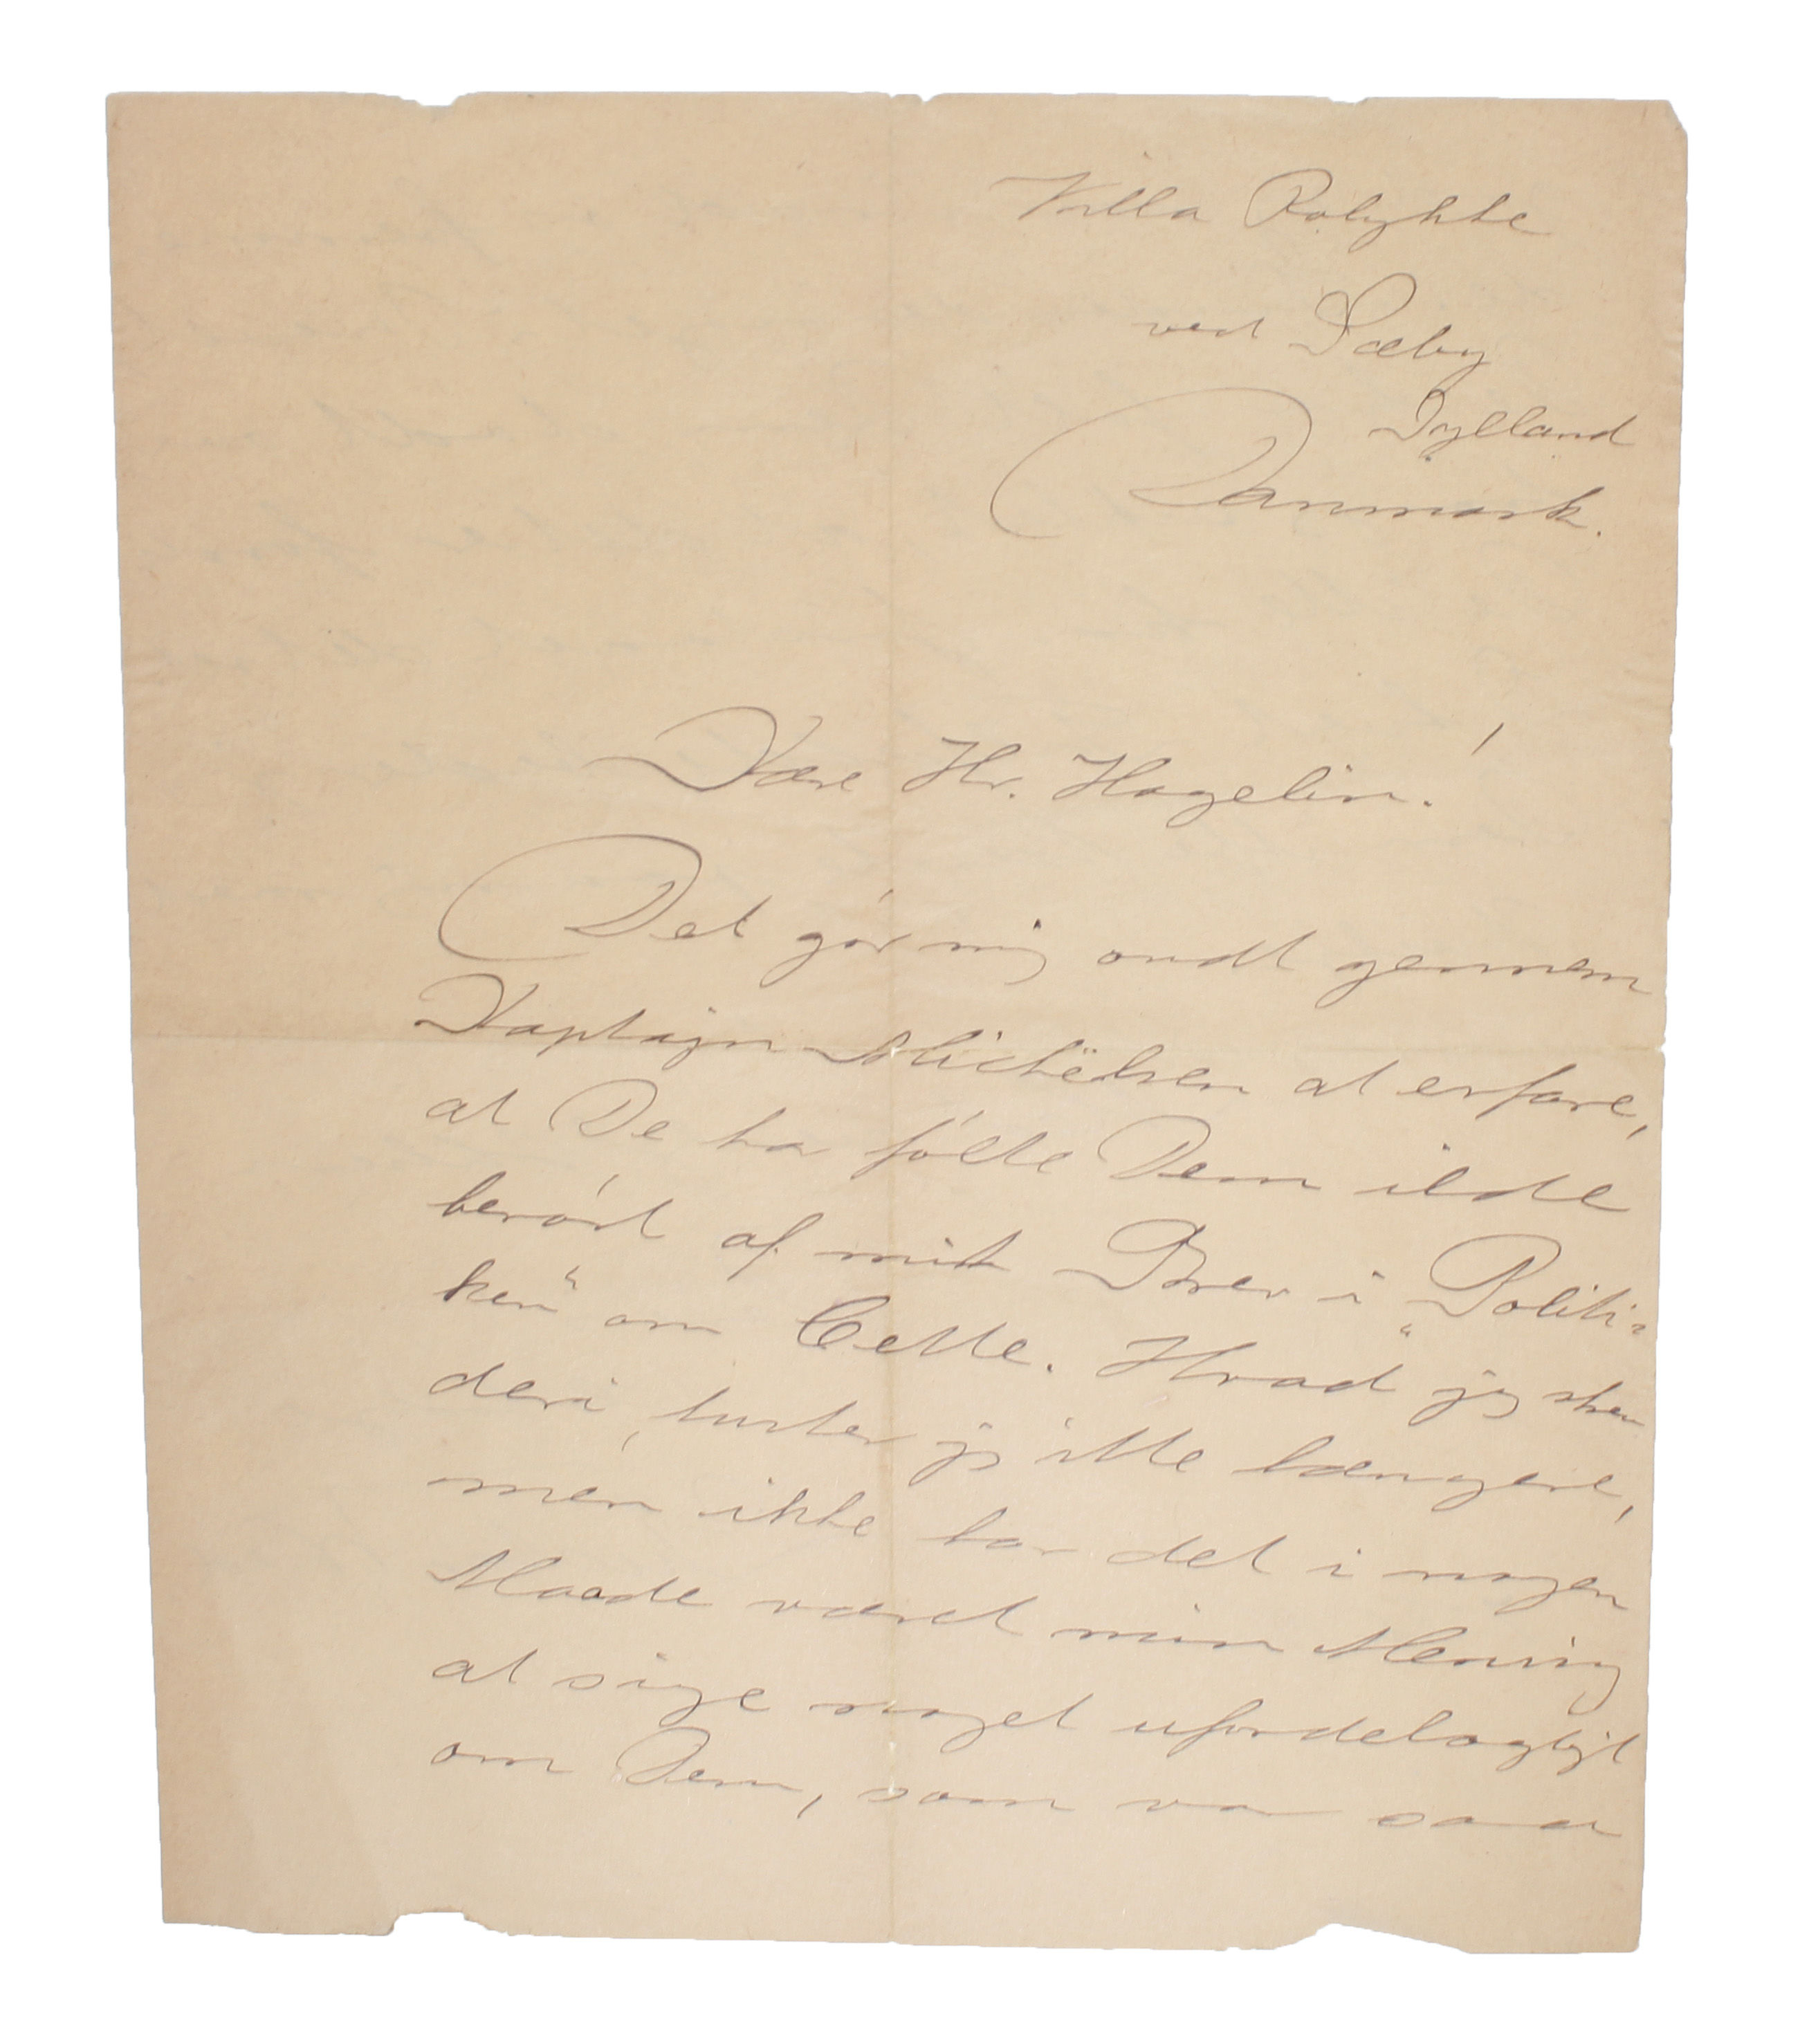 Villa Rolykke
ved Sæby
Jylland
Danmark.
Kære Hr. Hagelin!
Det gør mig ondt gennem
Kaptajn Michelsen at erfare,
at De har følte Dem ilde
berørt af mit Brev i „Politi-
ken“ om Cette. Hvad jeg skrev
deri, husker jeg ikke længere,
men ikke har det i nogen
Maade været min Mening
at sige noget ufordelagtigt
om Dem, som var saa